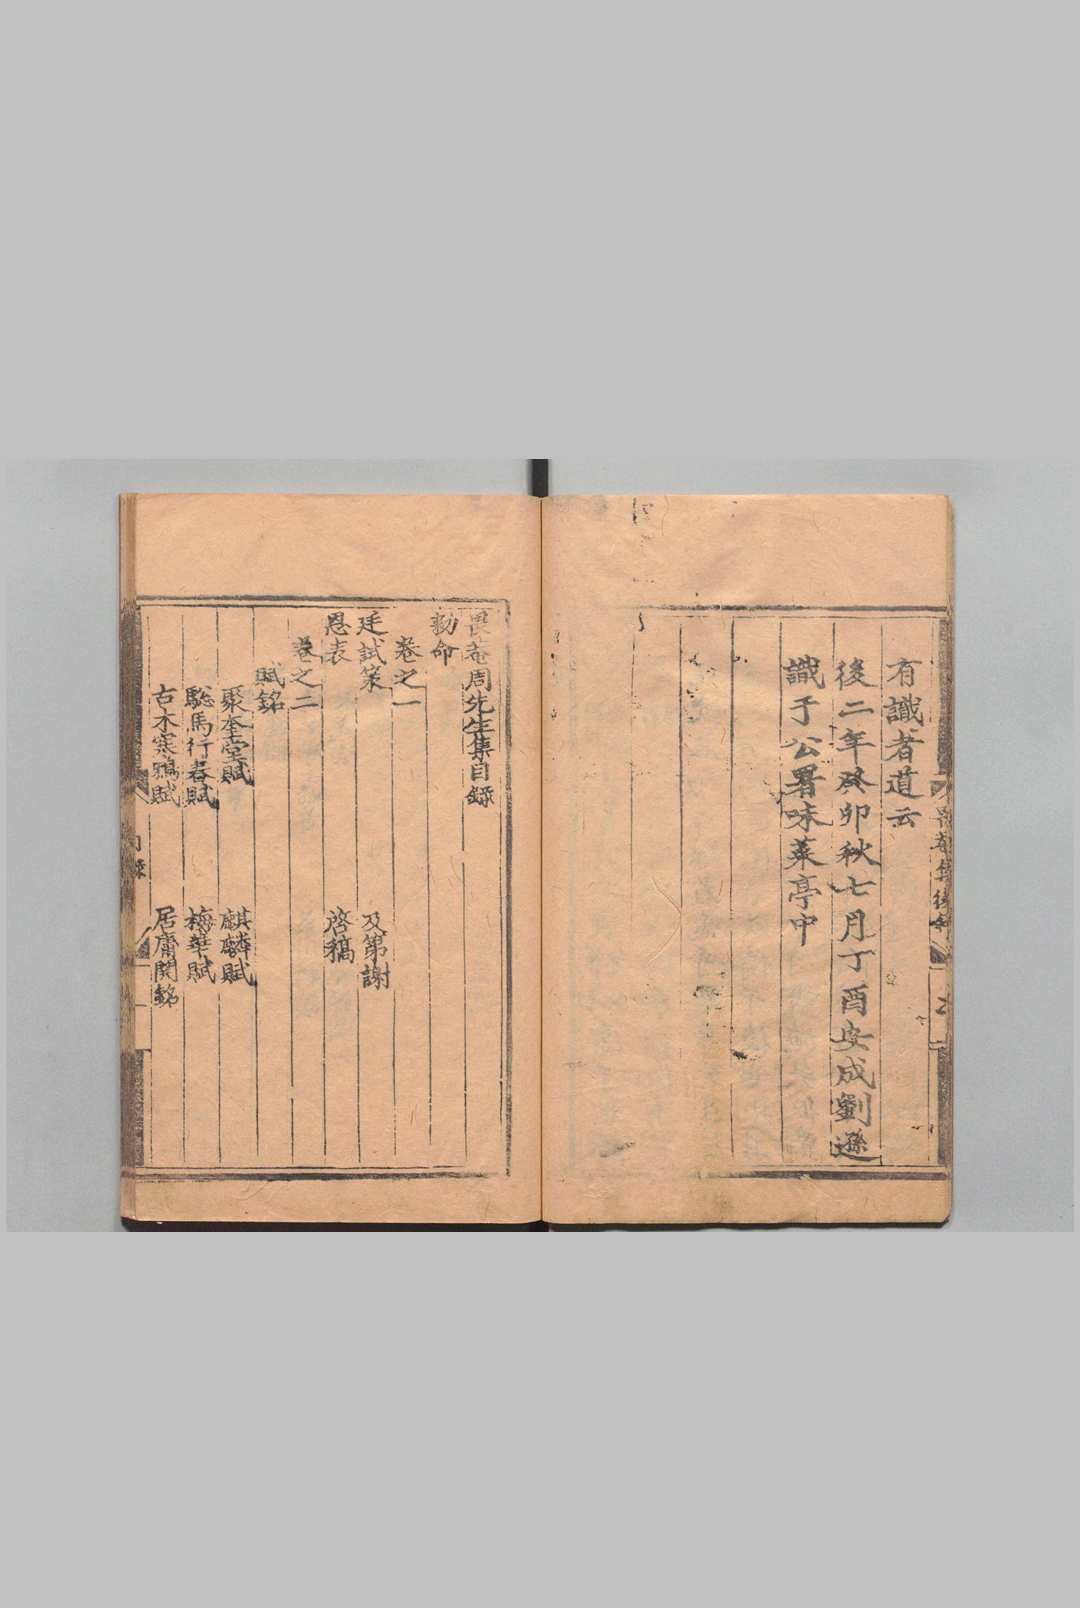 有識者道云
後二年癸卯秋七月丁酉安成劉遜
識于公署味菜亭中
畏菴周先生集目錄
勑命
卷之一
廷試策 及第謝
恩表 啓稿
卷之二
賦銘
聚奎堂賦 麒麟賦
驄馬行春賦 梅華賦
古木寒鴉賦 居庸関銘
目錄